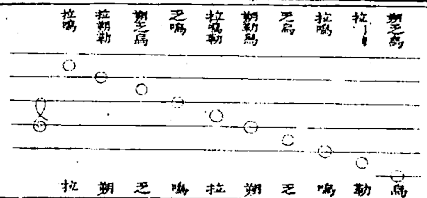 拉鳴
拉朔勒
朔乏烏
乏鳴
拉鳴勒
朔勒烏
乏烏
拉鳴
拉
朔乏烏
拉 朔 乏 鳴 拉 朔 乏 鳴 勒 烏